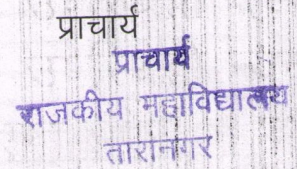 प्राचार्य
प्राचार्य
राजकीय महाविद्यालय
तारानगर